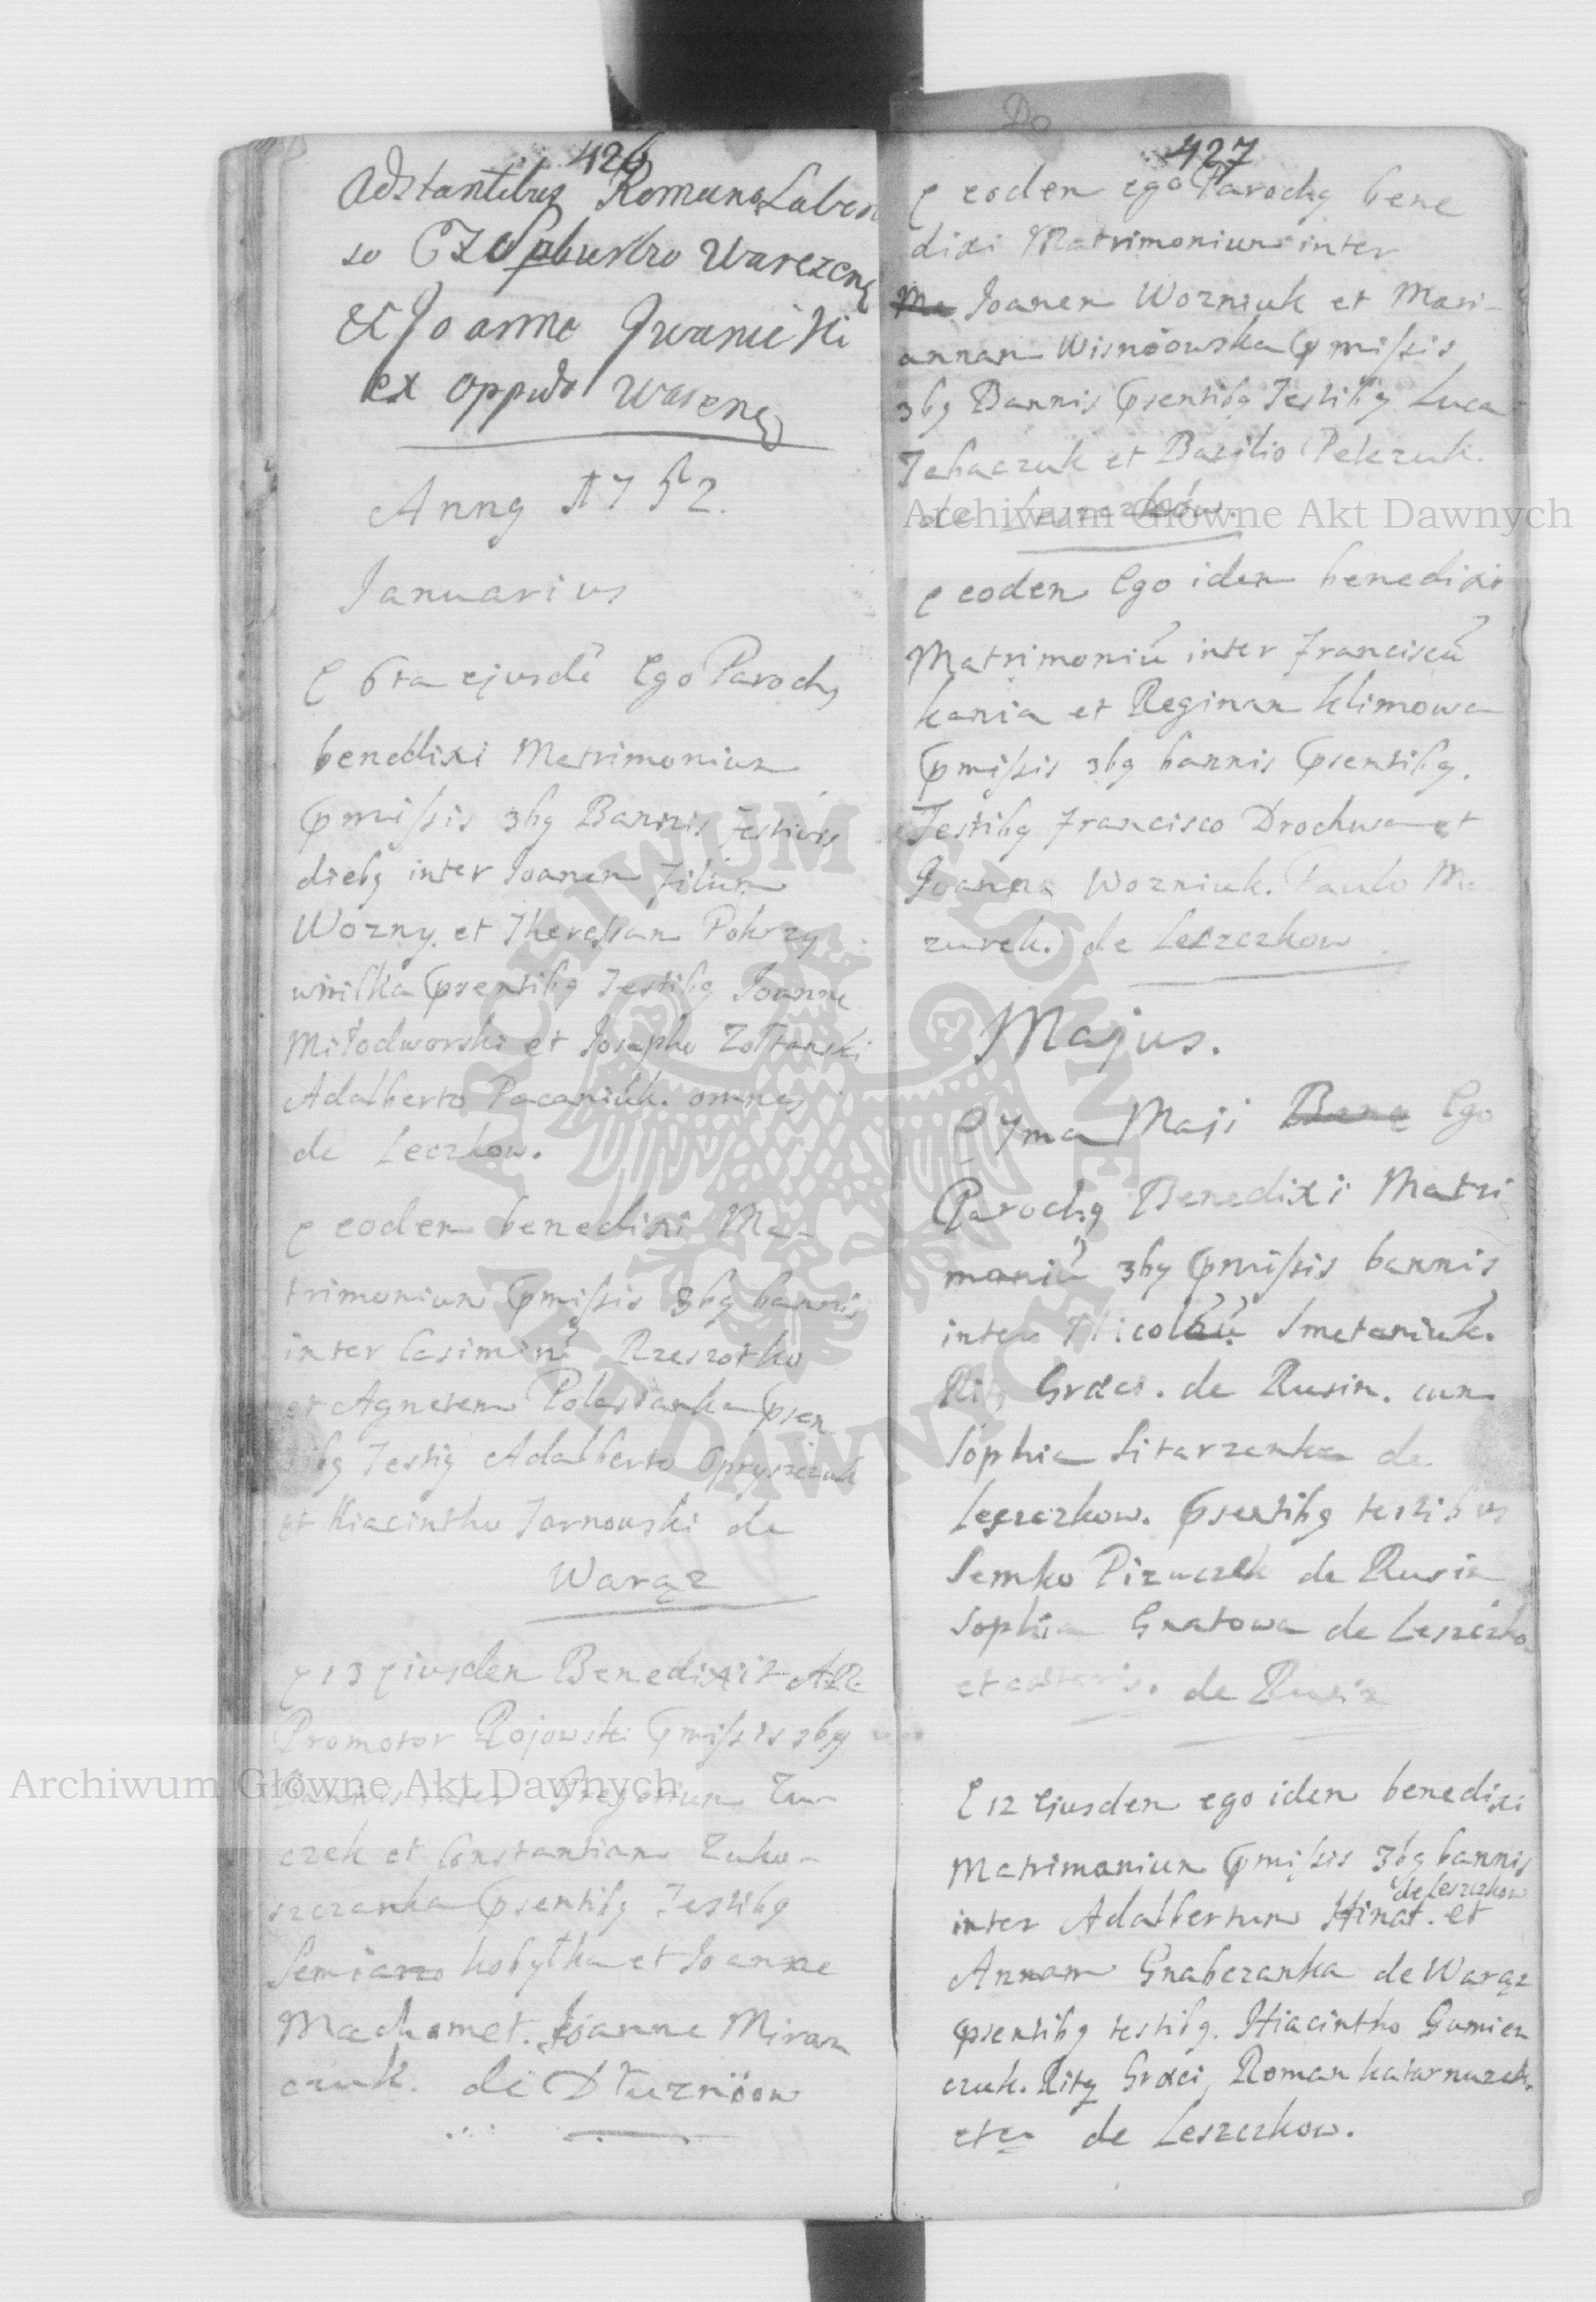 426
Adstantibus Romano
Warezens
et Joanne Iwanicki
ex oppido Warens
Anng 1752.
Januarius
6ta ejusdē Ego Parochg
benedixi Matrimonium
pmissis 3bg Bannis festivis
diebg inter Joanem filium
Wozny et Theressam Pokrzy
psentibg Testibg Joanne
Miłodworski et Josepho Zołtanski
Adalberto Pacaniuk. omnes
de Leczkow.
eodem benedixi Ma-
trimonium pmissis 3bg bannis
inter Casimirū Rzeszotko
et Agnetem psen
Testig Adalberto Opryszczuk
et Hiacintho Tarnowski de
Warąz
13 eiusdem Benedixit
Promotor Rojowski pmissis 3bg
Bannis inter Gregorium Zu-
czek et Constantiam Zuko-
szczanka psentibg Testibg
Kobyłka et Joanne
Machomet. Joanne Miron
czuk. de Dłuzniow
427
eodem ego Parochg bene
dixi Matrimonium inter
Joanem Wozniuk et Mari-
annam Wisniowska pmissis
3bg Bannis psentibg Testibg Luca
et Basilio Pelczuk.
de Leszczkow.
eodem Ego idem benedixi
Matrimoniū inter Franciscū
Kania et Reginam Klimowa
pmissis 3bg bannis psentibg.
Testibg Francisco Drochwa et
Joanne Wozniuk. Paulo Ma-
zurek. de Leszczkow
Majus.
7ma Maji Ego
Parochg Benedixi Matri
moniū 3bg pmissis bannis
inter Nicolaū Smetaniuk.
Ritg Graeci. de Rusin. cum
Sophia Sitarzanka de
Leszczkow. psentibg testibus
Semko Pizuczek de Rusin
Sophia Gnatowa de Leszczko
et caeteris. de Rusin
12 Ejusdem ego idem benedixi
Matrimonium pmissis 3bg bannis
de Leszczkow
inter Adalbertum Hinat. et
Annam Gnabczanka de Warąz
psentibg testibg. Hiacintho Gumien
czuk. Ritg Graeci, Roman
etc. de Leszczkow.
Archiwum Główne Akt Dawnych
Archiwum Główne Akt Dawnych
ARCHIWUM GŁÓWNE AKT DAWNYCH